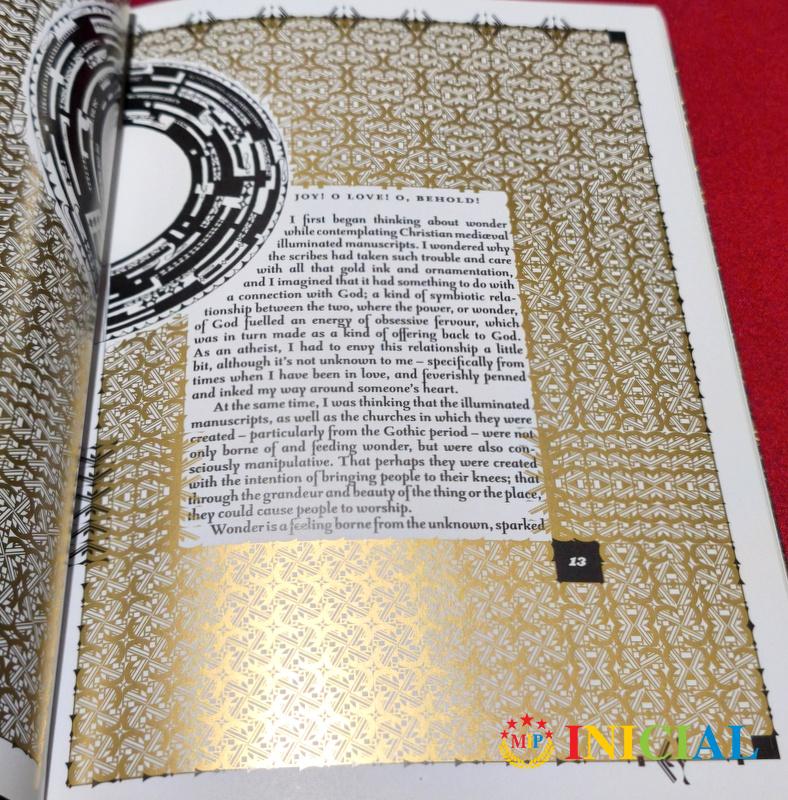 JOY! O LOVE! O, BEHOLD!
I first began thinking about wonder
while contemplating Christian mediæval
illuminated manuscripts. I wondered why
the scribes had taken such trouble and care
with all that gold ink and ornamentation,
and I imagined that it had something to do with
a connection with God; a kind of symbiotic rela-
tionship between the two, where the power, or wonder,
of God fuelled an energy of obsessive fervour, which
was in turn made as a kind of offering back to God.
As an atheist, I had to envy this relationship a little
bit, although it's not unknown to me – specifically from
times when I have been in love, and feverishly penned
and inked my way around someone's heart.
At the same time, I was thinking that the illuminated
manuscripts, as well as the churches in which they were
created – particularly from the Gothic period – were not
only borne of and feeding wonder, but were also con-
sciously manipulative. That perhaps they were created
with the intention of bringing people to their knees; that
through the grandeur and beauty of the thing or the place,
they could cause people to worship.
Wonder is a feeling borne from the unknown, sparked
13
MP INICIAL